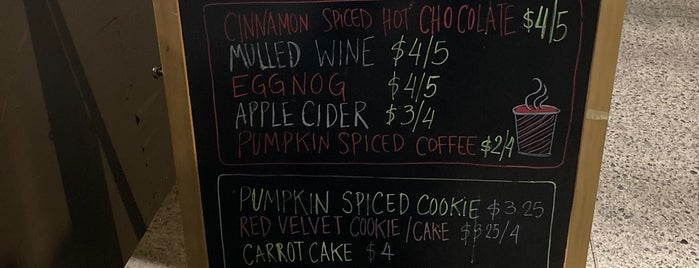 CINNAMON SPICED HOT CHOCOLATE $4/5
MULLED WINE $4/5
EGGNOG $4/5
APPLE CIDER $3/4
PUMPKIN SPICED COFFEE $2/4
PUMPKIN SPICED COOKIE $3.25
RED VELVET COOKIE/CAKE $3.25/4
CARROT CAKE $4